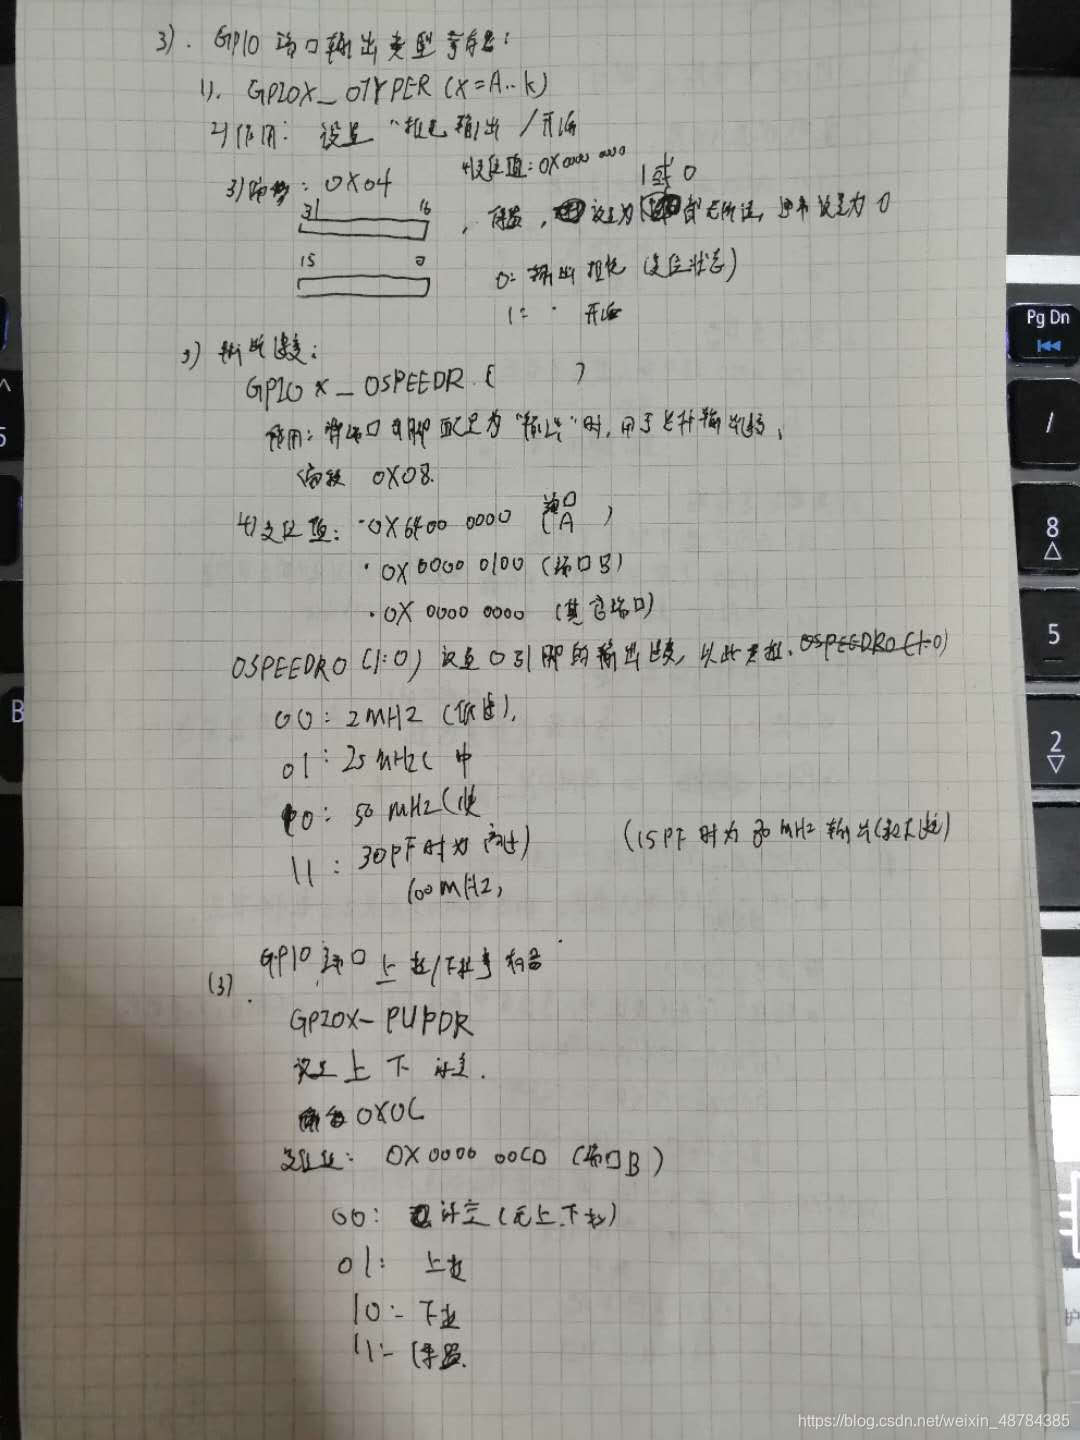 3). GPIO 端口输出类型寄存器:
1). GPIOX_OTYPER (X=A..k)
2) 作用: 设置 "推挽输出/开漏
3) 偏移: 0X04
4) 复位值: 0X0000 0000
31 16
1或0
, 保留, 设置为 都无所谓, 通常设置为 0
15 0
0: 输出推挽 (复位状态)
1: · 开漏
3) 输出速度:
GPIO X_OSPEEDR. ( )
作用: 将端口引脚配置为 "输出" 时, 用于 输出速度,
偏移 0X08.
4) 复位值: ·0X6400 0000 (端口A)
·0X 0000 0100 (端口B)
·0X 0000 0000 (其它端口)
OSPEEDR0 (1:0) 设置0引脚的输出速度, 以此类推. OSPEEDR0 (1:0)
00: 2MHZ (低速).
01: 25MHZ( 中
10: 50 MHZ(快
11: 30PF时为 高速)
100MHZ,
(15PF 时为 80MHZ 输出(最大速)
(3). GPIO 端口 上拉/下拉寄存器
GPIOX_PUPDR
设置 上 下
偏移 0X0C
复位值: 0X0000 00C0 (端口B)
00: 浮空 (无上.下拉)
01: 上拉
10: 下拉
11: 保留.
Pg Dn
/
^
5
8
5
2
B
护
https://blog.csdn.net/weixin_48784385